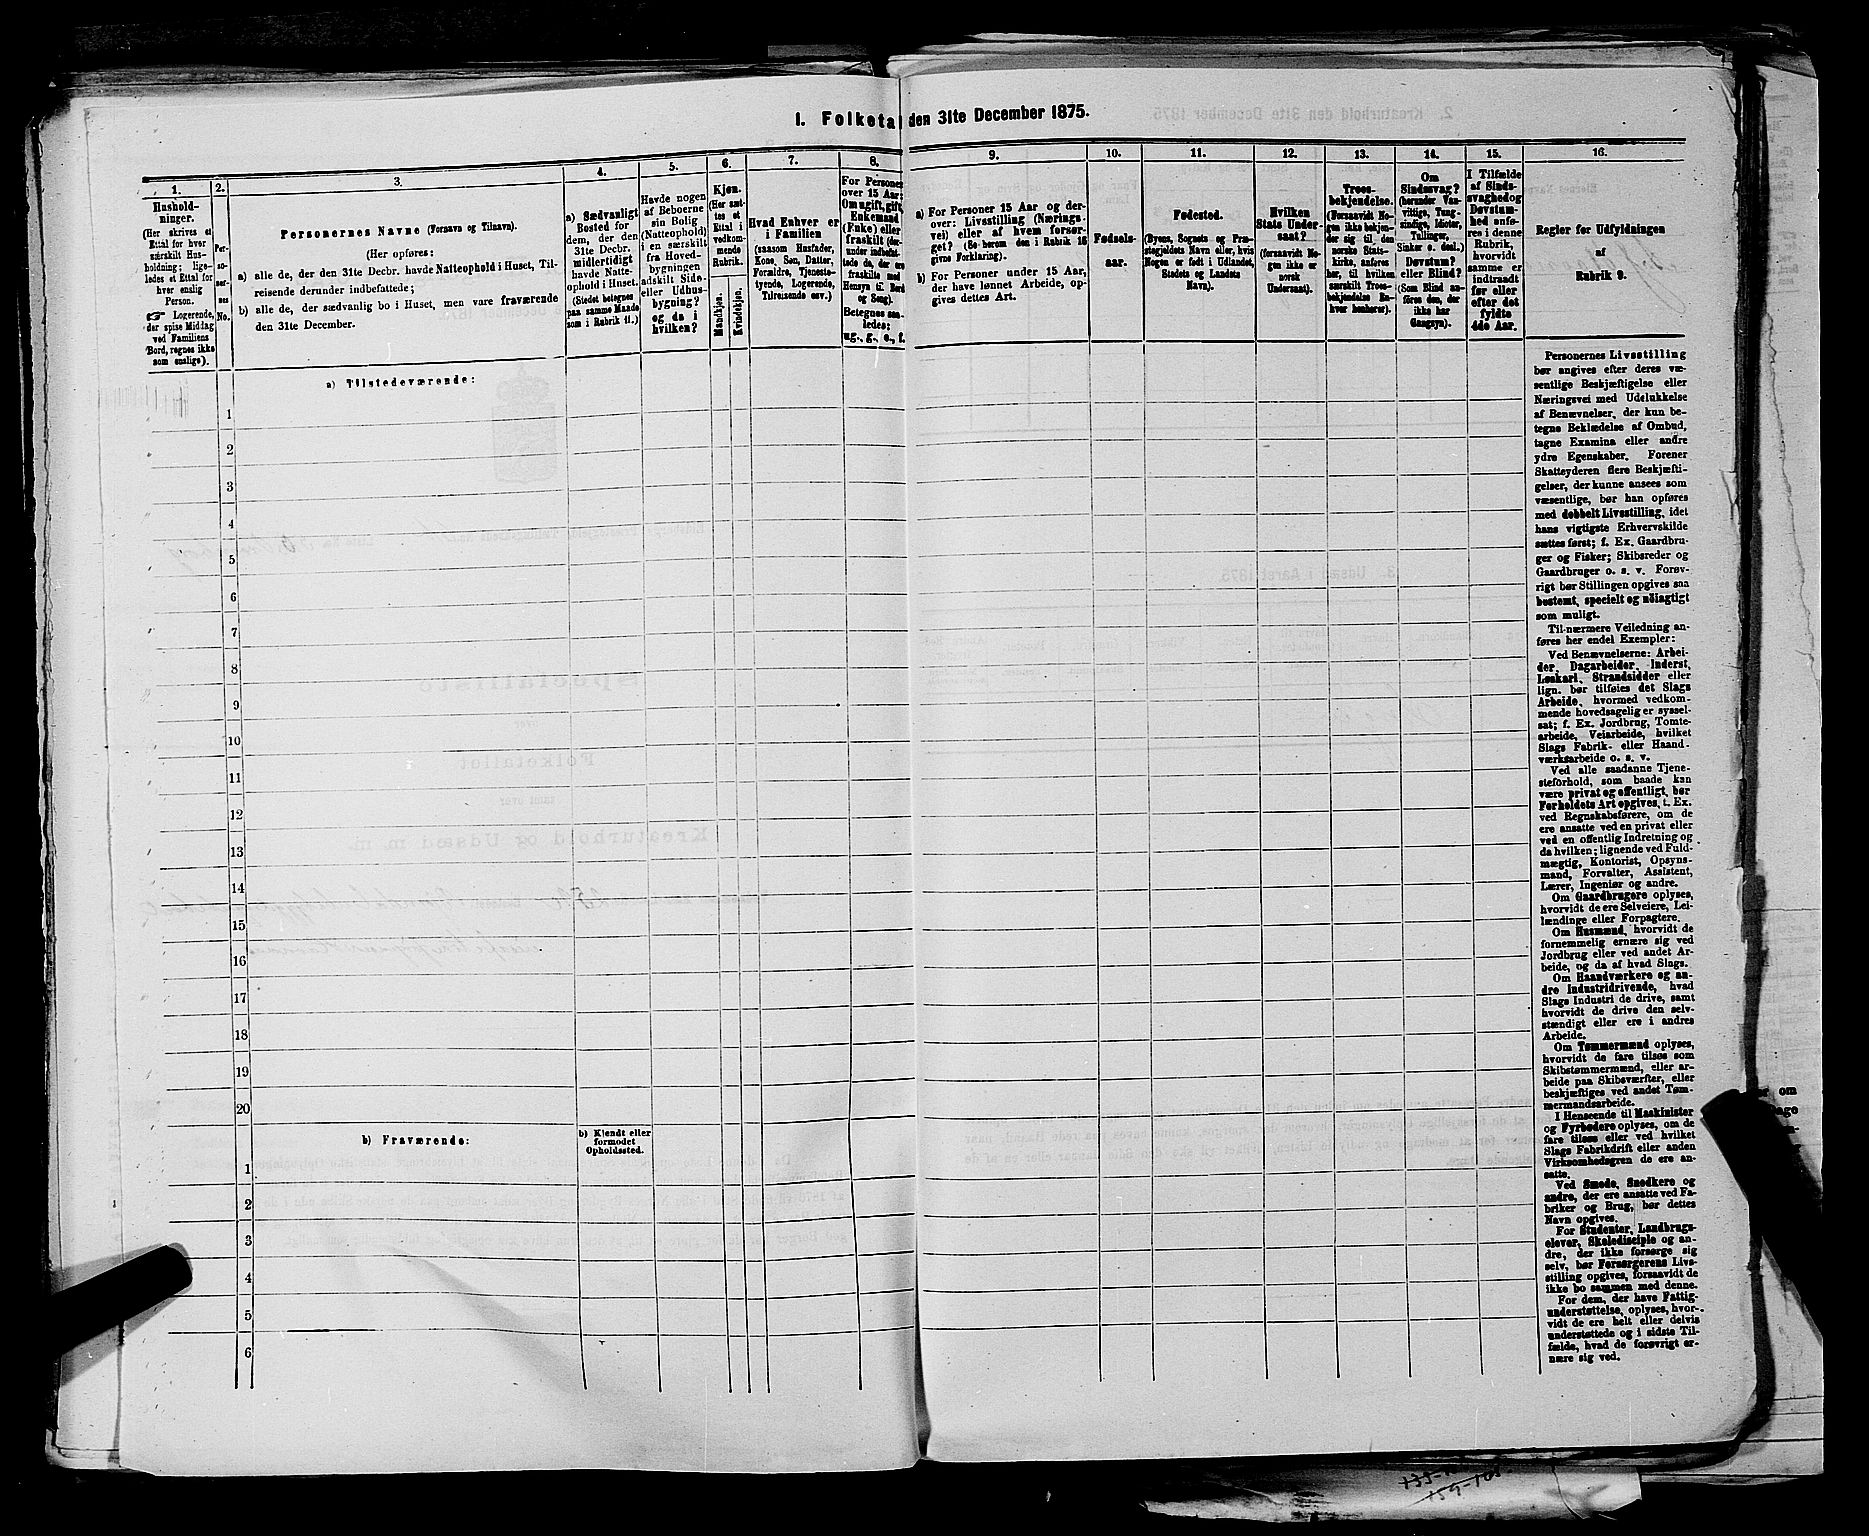 1. Folketa den 31te December 1875.
1.
Hushold-
ninger.
(Her skrives et
Ettal for hver
særskilt Hus-
holdning; lige-
ledes et Ettal for
hver enslig
Person.
☞ Logerende,
der spise Middag
ved Familiens
Bord, regnes ikke
som enslige).
2.
Per-
so-
ner-
nes
No.
3.
Personernes Navne (Fornavn og Tilnavn).
(Her opføres:
a) alle de, der den 31te Decbr. havde Natteophold i Huset, Til-
reisende derunder indbefattede;
b) alle de, der sædvanlig bo i Huset, men vare fraværende
den 31te December.
4.
a) Sædvanligt
Bosted for
dem, der den
31te Decbr.
midlertidigt
havde Natte-
ophold i Huset.
(Stedet betegnes
paa samme Maade
som i Rubrik 11.)
5.
Havde nogen
af Beboerne
sin Bolig
(Natteophold)
i en særskilt
fra Hoved-
bygningen
adskilt Side-
eller Udhus-
bygning?
og da i
hvilken?
6.
Kjøn.
(Her sæt-
tes et
Ettal i
vedkom-
mende
Rubrik.
Mandkjøn.
Kvindekjøn.
7.
Hvad Enhver er
i Familien
(saasom Husfader,
Kone, Søn, Datter,
Forældre, Tjeneste-
tyende, Logerende,
Tilreisende osv.)
8.
For Personer
over 15 Aar:
Om ugift, gift,
Enkemand
(Enke) eller
fraskilt (der-
under indbefat-
tede de, der ere
fraskilte med
Hensyn til Bord
og Seng).
Betegnes saa-
ledes:
ug., g., e., f.
9.
a) For Personer 15 Aar og der-
over: Livsstilling (Nærings-
vei) eller af hvem forsør-
get? (Se herom den i Rubrik 16
givne Forklaring).
b) For Personer under 15 Aar,
der have lønnet Arbeide, op-
gives dettes Art.
10.
Fødsels-
aar.
11.
Fødested.
(Byens, Sognets og Præ-
stegjeldets Navn eller, hvis
Nogen er født i Udlandet,
Stedets og Landets
Navn).
12.
Hvilken
Stats Under-
saat?
(forsaavidt No-
gen ikke er
norsk
Undersaat).
13.
Troes-
bekjendelse.
(Forsaavidt No-
gen ikke bekjen-
der sig til den
norske Stats-
kirke, anføres
her, til hvilken
særskilt Troes-
bekjendelse En-
hver henhører).
14.
Om
Sindssvag?
(herunder Van-
vittige, Tung-
sindige, Idioter,
Tullinger,
Sinker o. desl.)
Døvstum?
eller Blind?
(Som Blind an-
føres den, der
ikke har
Gangsyn).
15.
I Tilfælde
af Sinds-
svaghed og
Døvstum-
hed anfø-
res i denne
Rubrik,
hvorvidt
samme er
indtraadt
før eller
efter det
fyldte
4de Aar.
16.
Regler for Udfyldningen
af
Rubrik 9.
a) Tilstedeværende:
1
2
3
4
5
6
7
8
9
10
11
12
13
14
15
16
17
18
19
20
b) Fraværende:
b) Kjendt eller
formodet
Opholdssted.
1
2
3
4
5
6
Personernes Livsstilling
bør angives efter deres væ-
sentlige Beskjæftigelse eller
Næringsvei med Udelukkelse
af Benævnelser, der kun be-
tegne Beklædelse af Ombud,
tagne Examina eller andre
ydre Egenskaber. Forener
Skatteyderen flere Beskjæfti-
gelser, der kunne ansees som
væsentlige, bør han opføres
med dobbelt Livsstilling, idet
hans vigtigste Erhvervskilde
sættes først; f. Ex. Gaardbru-
ger og Fisker; Skibsreder og
Gaardbruger o. s. v. Forøv-
rigt bør Stillingen opgives saa
bestemt, specielt og nöiagtigt
som muligt.
Til nærmere Veiledning an-
føres her endel Exempler:
Ved Benævnelserne: Arbei-
der, Dagarbeider, Inderst,
Løskarl, Strandsidder eller
lign. bør tilføies det Slags
Arbeide, hvormed vedkom-
mende hovedsagelig er syssel-
sat; f. Ex. Jordbrug, Tomte-
arbeide, Veiarbeide, hvilket
Slags Fabrik- eller Haand-
værksarbeide o. s. v.
Ved alle saadanne Tjene-
steforhold, som baade kan
være privat og offentligt, bør
Forholdets Art opgives, t. Ex.
ved Regnskabsførere, om de
ere ansatte ved en privat eller
ved en offentlig Indretning og
da hvilken; lignende ved Fuld-
mægtig, Kontorist, Opsyns-
mand, Forvalter, Assistent,
Lærer, Ingeniør og andre.
Om Gaardbrugere oplyses,
hvorvidt de ere Selveiere, Lei-
lændinge eller Forpagtere.
Om Husmænd, hvorvidt de
fornemmelig ernære sig ved
Jordbrug eller ved andet Ar-
beide, og da af hvad Slags.
Om Haandværkere og an-
dre Industridrivende, hvad
Slags Industri de drive, samt
hvorvidt de drive den selv-
stændigt eller ere i andres
Arbeide.
Om Tømmermænd oplyses,
hvorvidt de fare tilsøs som
Skibstømmermænd, eller ar-
beide paa Skibsværfter, eller
beskjæftiges ved andet Tøm-
mermandsarbeide.
I Henseende til Maskinister
og Fyrbødere oplyses, om de
fare tilsøs eller ved hvilket
Slags Fabrikdrift eller anden
Virksomhedsgren de ere an-
satte.
Ved Smede, Snedkere og
andre, der ere ansatte ved Fa-
briker og Brug, bør dettes
Navn opgives.
For Studenter, Landbrugs-
elever, Skoledisciple og an-
dre, der ikke forsørge sig
selv, bør Forsørgerens Livs-
stilling opgives, forsaavidt de
ikke bo sammen med denne.
For dem, der have Fattig-
understøttelse, oplyses, hvor-
vidt de ere helt eller delvis
understøttede og i sidste Til-
fælde, hvad de forøvrigt er-
nære sig ved.